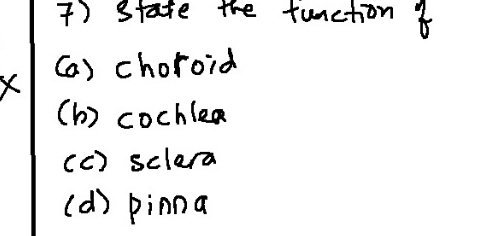 7) State the function of
(a) choroid
x
(b) cochlea
(c) sclera
(d) pinna